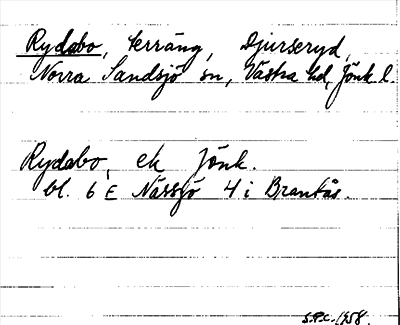 Rydabo, terräng, Djurseryd,
Norra Sandsjö sn, Västra hd, Jönk. l.
Rydabo, ek Jönk.
bl. 6 E Nässjö 4 i Brantås.
S.P.C. 1958.